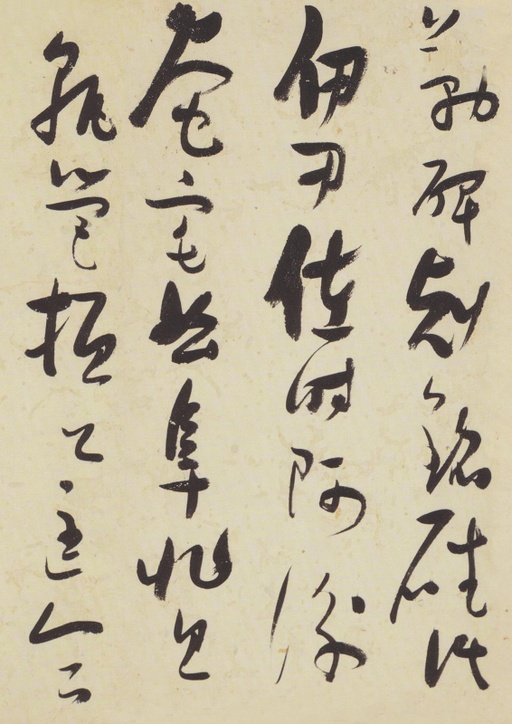 勒碑刻銘磻溪
伊尹佐時阿衡
奄宅曲阜微旦
孰營桓公匡合